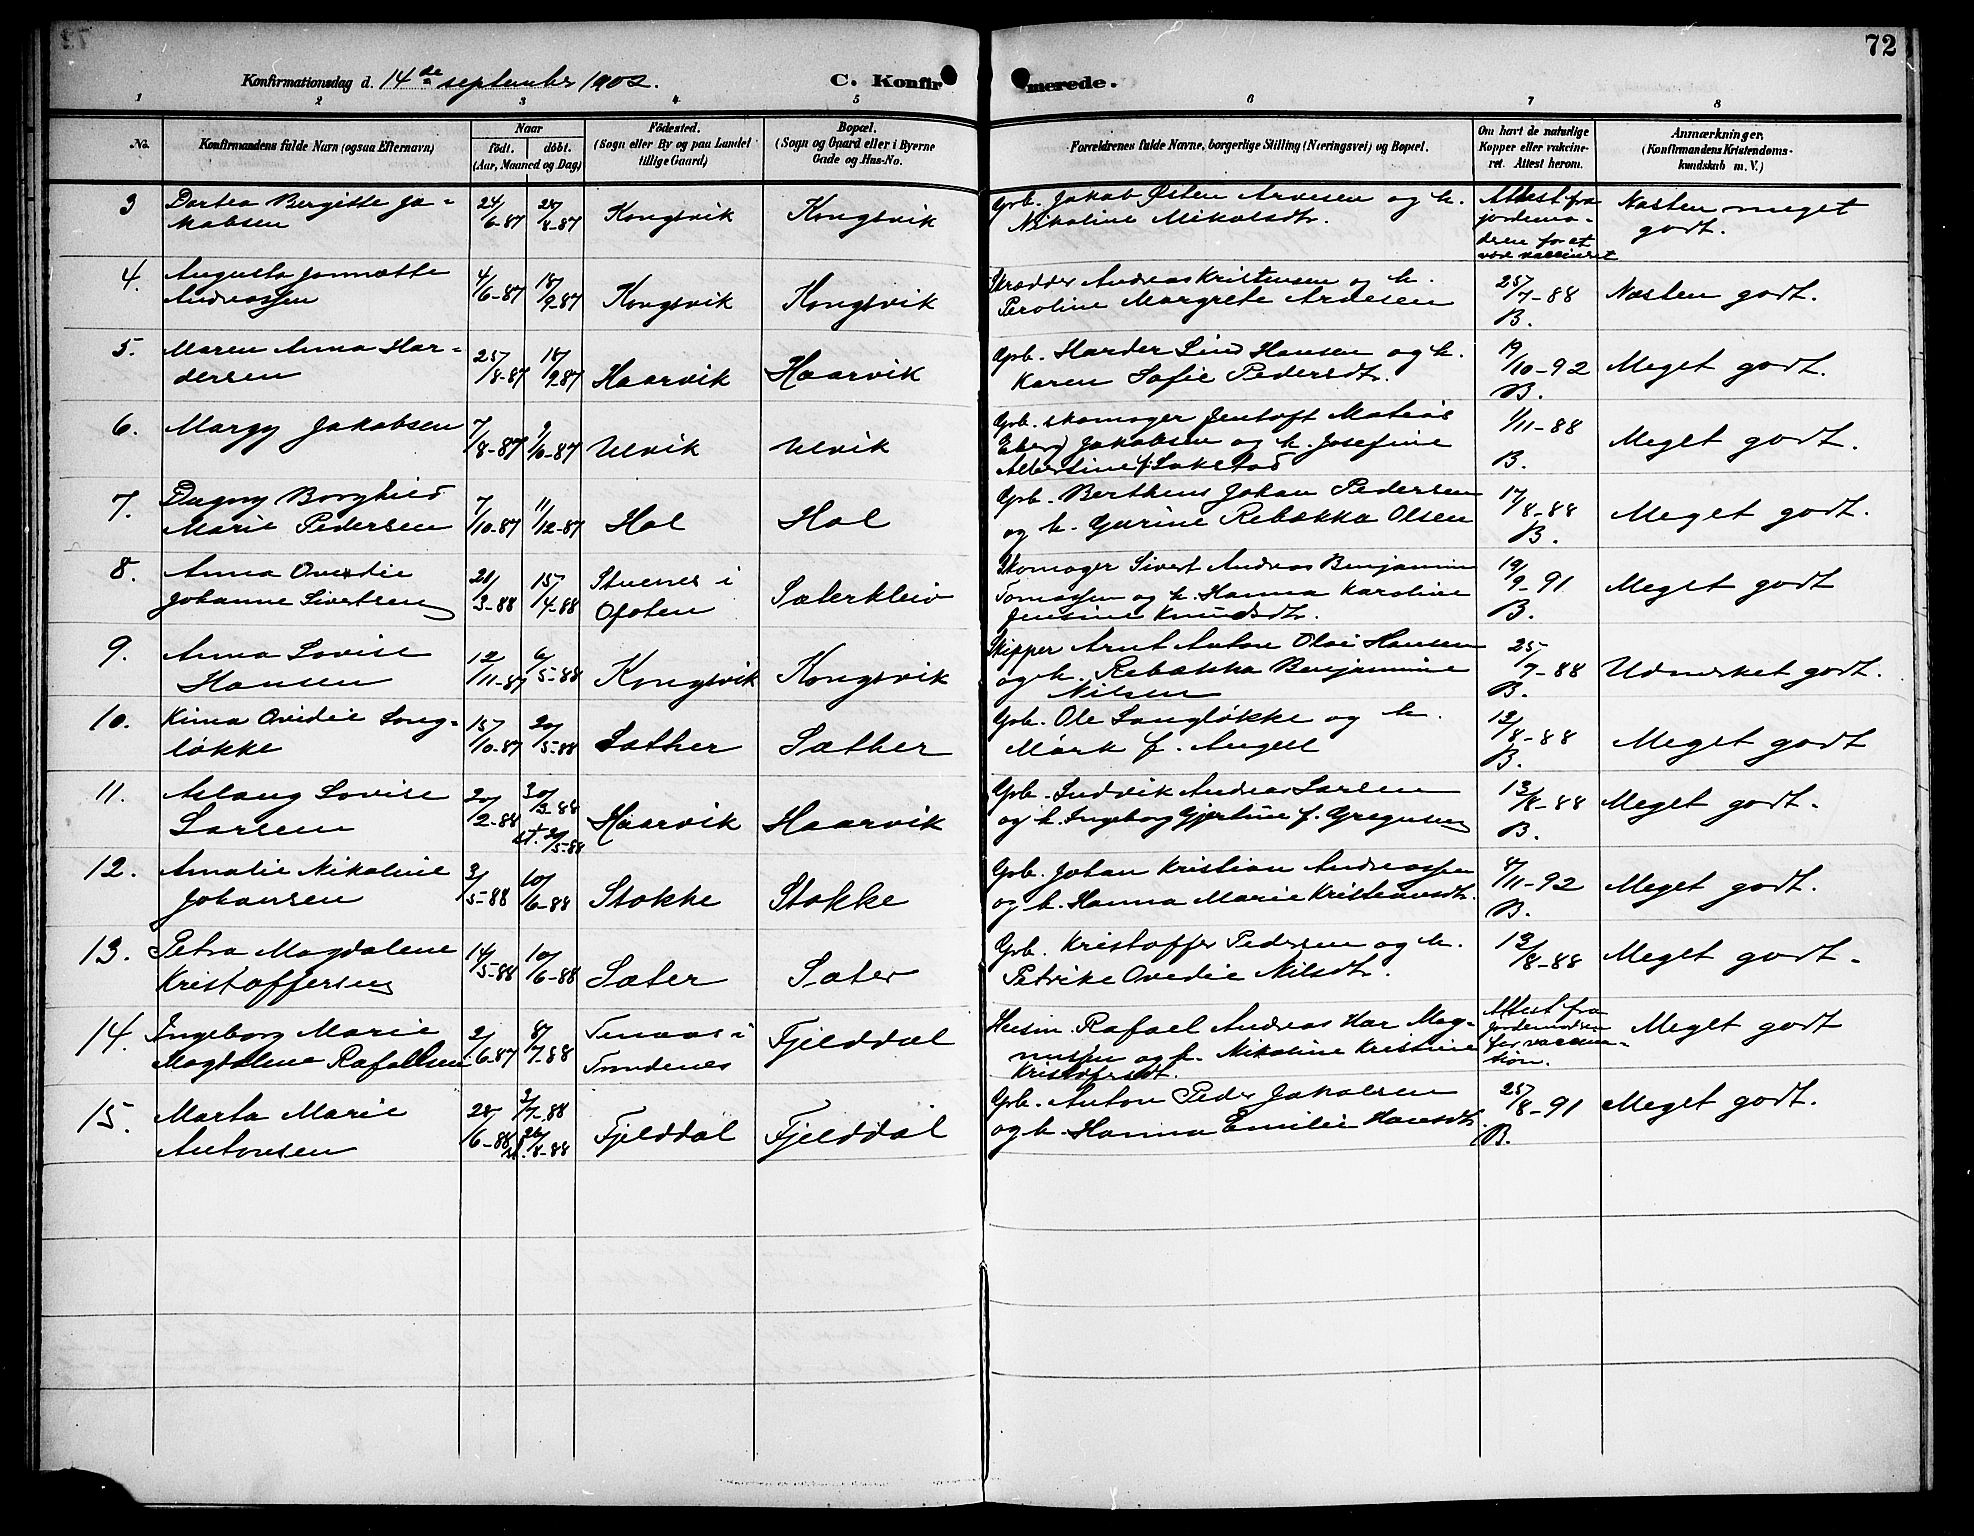 72
Konfirmationsdag d. 14de september 1902.
C. Konfirmerede.
1 2 3 4 5 6 7 8
No.
Konfirmandens fulde Navn (ogsaa Efternavn)
Naar
født. døbt.
(Aar, Maaned og Dag)
Fødested.
(Sogn eller By og paa Landet
tillige Gaard)
Bopæl.
(Sogn og Gaard eller i Byerne
Gade og Hus-No.
Forældrenes fulde Navne, borgerlige Stilling (Næringsvei) og Bopæl.
Om havt de naturlige
Kopper eller vakcine-
ret. Attest herom.
Anmærkninger,
(Konfirmandens Kristendoms-
kundskab m. V.)
3 Dortea Bergitte Ja-
kobsen 24/6-87 28/8-87 Kongsvik Kongsvik
Grb. Jakob Østen Arnesen og h.
Nikoline Mikalsdtr.
Attest fra
jordemo-
deren for at
være vaccineret
Næsten meget
godt.
4. Augusta Jonnette
Andreassen 4/6-87 18/9-87 Kongsvik Kongsvik
Skrædder Andreas Kristensen og h.
Peroline Margrete Ardesen
25/7-88
B.
Næsten godt.
5. Maren Anna Har-
dersen 25/8-87 18/9-87 Haarvik Haarvik
Grb. Harder Lind Hansen og h.
Karen Sofie Pedersdtr.
19/10-92
B.
Meget godt.
6. Margy Jakobsen 7/8-87 Ulvik Ulvik
Grb. skomager Jentoft Matias
Jakobsen og h. Josefine
Albertine f.
1/11-88
B.
Meget godt.
7. Dagny Borghild
Marie Pedersen 7/10-87 11/12-87 Hol Hol
Grb. Berthens Johan Pedersen
og h. Gurine Rebekka Olsen
17/8-88
B.
Meget godt.
8. Anna Ovedie
Johanne Sivertsen 21/3-88 15/4-88 Stuenes i
Ofoten Sæterkleiv
Skomager Sivert Andreas Benjamin
Tomassen og h. Hanna Karoline
Jensine Knudsdtr.
19/9-91
B.
Meget godt
9. Anna Lovise
Hansen 12/11-87 6/5-88 Kongsvik Kongsvik
Skipper Arnt Anton Olai Hansen
og h. Rebekka Benjamine
Nilsen
25/7-88
B.
Udmerket godt.
10. Kima Ovidie Lang-
løkke 15/10-87 20/5-88 Sæther Sæther
Grb. Ole Langløkke og h.
Mark f. Angell
13/8-88
B.
Meget godt
11. Aslaug Lovise
Larsen 20/2-88 30/3-88
st. 20/5-88 Haarvik Haarvik
Grb. Ludvik Andreas Larsen
og h. Ingeborg Gjertine f. Gregusen
13/8-88
B.
Meget godt.
12. Amalie Nikoline
Johansen 3/5-88 10/6-88 Stokke Stokke
Grb. Johan Kristian Andreassen
og h. Hanna Marie Kristiansdtr.
4/11-92
B.
Meget godt.
13. Petra Magdalene
Kristoffersen 14/5-88 10/6-88 Sæter Sæter
Grb. Kristoffer Pedersen og h.
Petrike Ovedie Nilsdtr.
13/8-88
Meget godt.
14. Ingeborg Marie
Magdalena Rafaelsen 2/6-87 8/7-88
Trondenes Fjelddal
Husm. Rafael Andreas Har Mag-
nussen og h. Nikoline Kristine
Kristofersdt.
Attest fra
Jordemoderen
for vaccina-
tion.
Meget godt
15. Marta Marie
Antonsen 28/6-88 3/7-88
26/8-88 Fjelddal Fjelddal
Grb. Anton Peder Jakobsen
og h. Hanna Emilie Hansdtr.
25/8-91
B.
Meget godt.